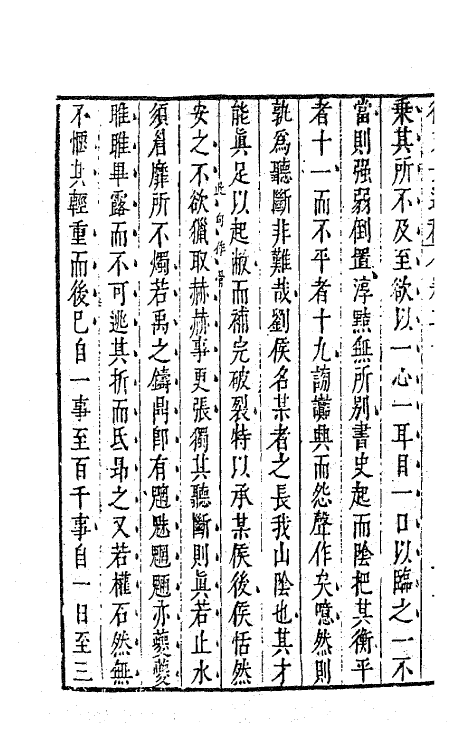 乗其所不及至欲以一心一耳目一口以臨之一不
當則强弱倒置淳㸃無所别書史起而陰把其衡平
者十一而不平者十九謗讟興而怨聲作矣噫然則
孰爲聽斷非難哉劉侯名某者之長我山陰也其才
能眞足以起敝而補完破裂特以承某侯後侯恬然
安之不欲獵取赫赫事更張獨其聽斷則眞若止水
此句作骨
須眉靡所不燭若禹之鑄鼎卽有魑魅魍魎亦夔夔
睢睢畢露而不可逃其折而氐昻之又若權石然無
不愜其輕重而後已自一事至百千事自一日至三